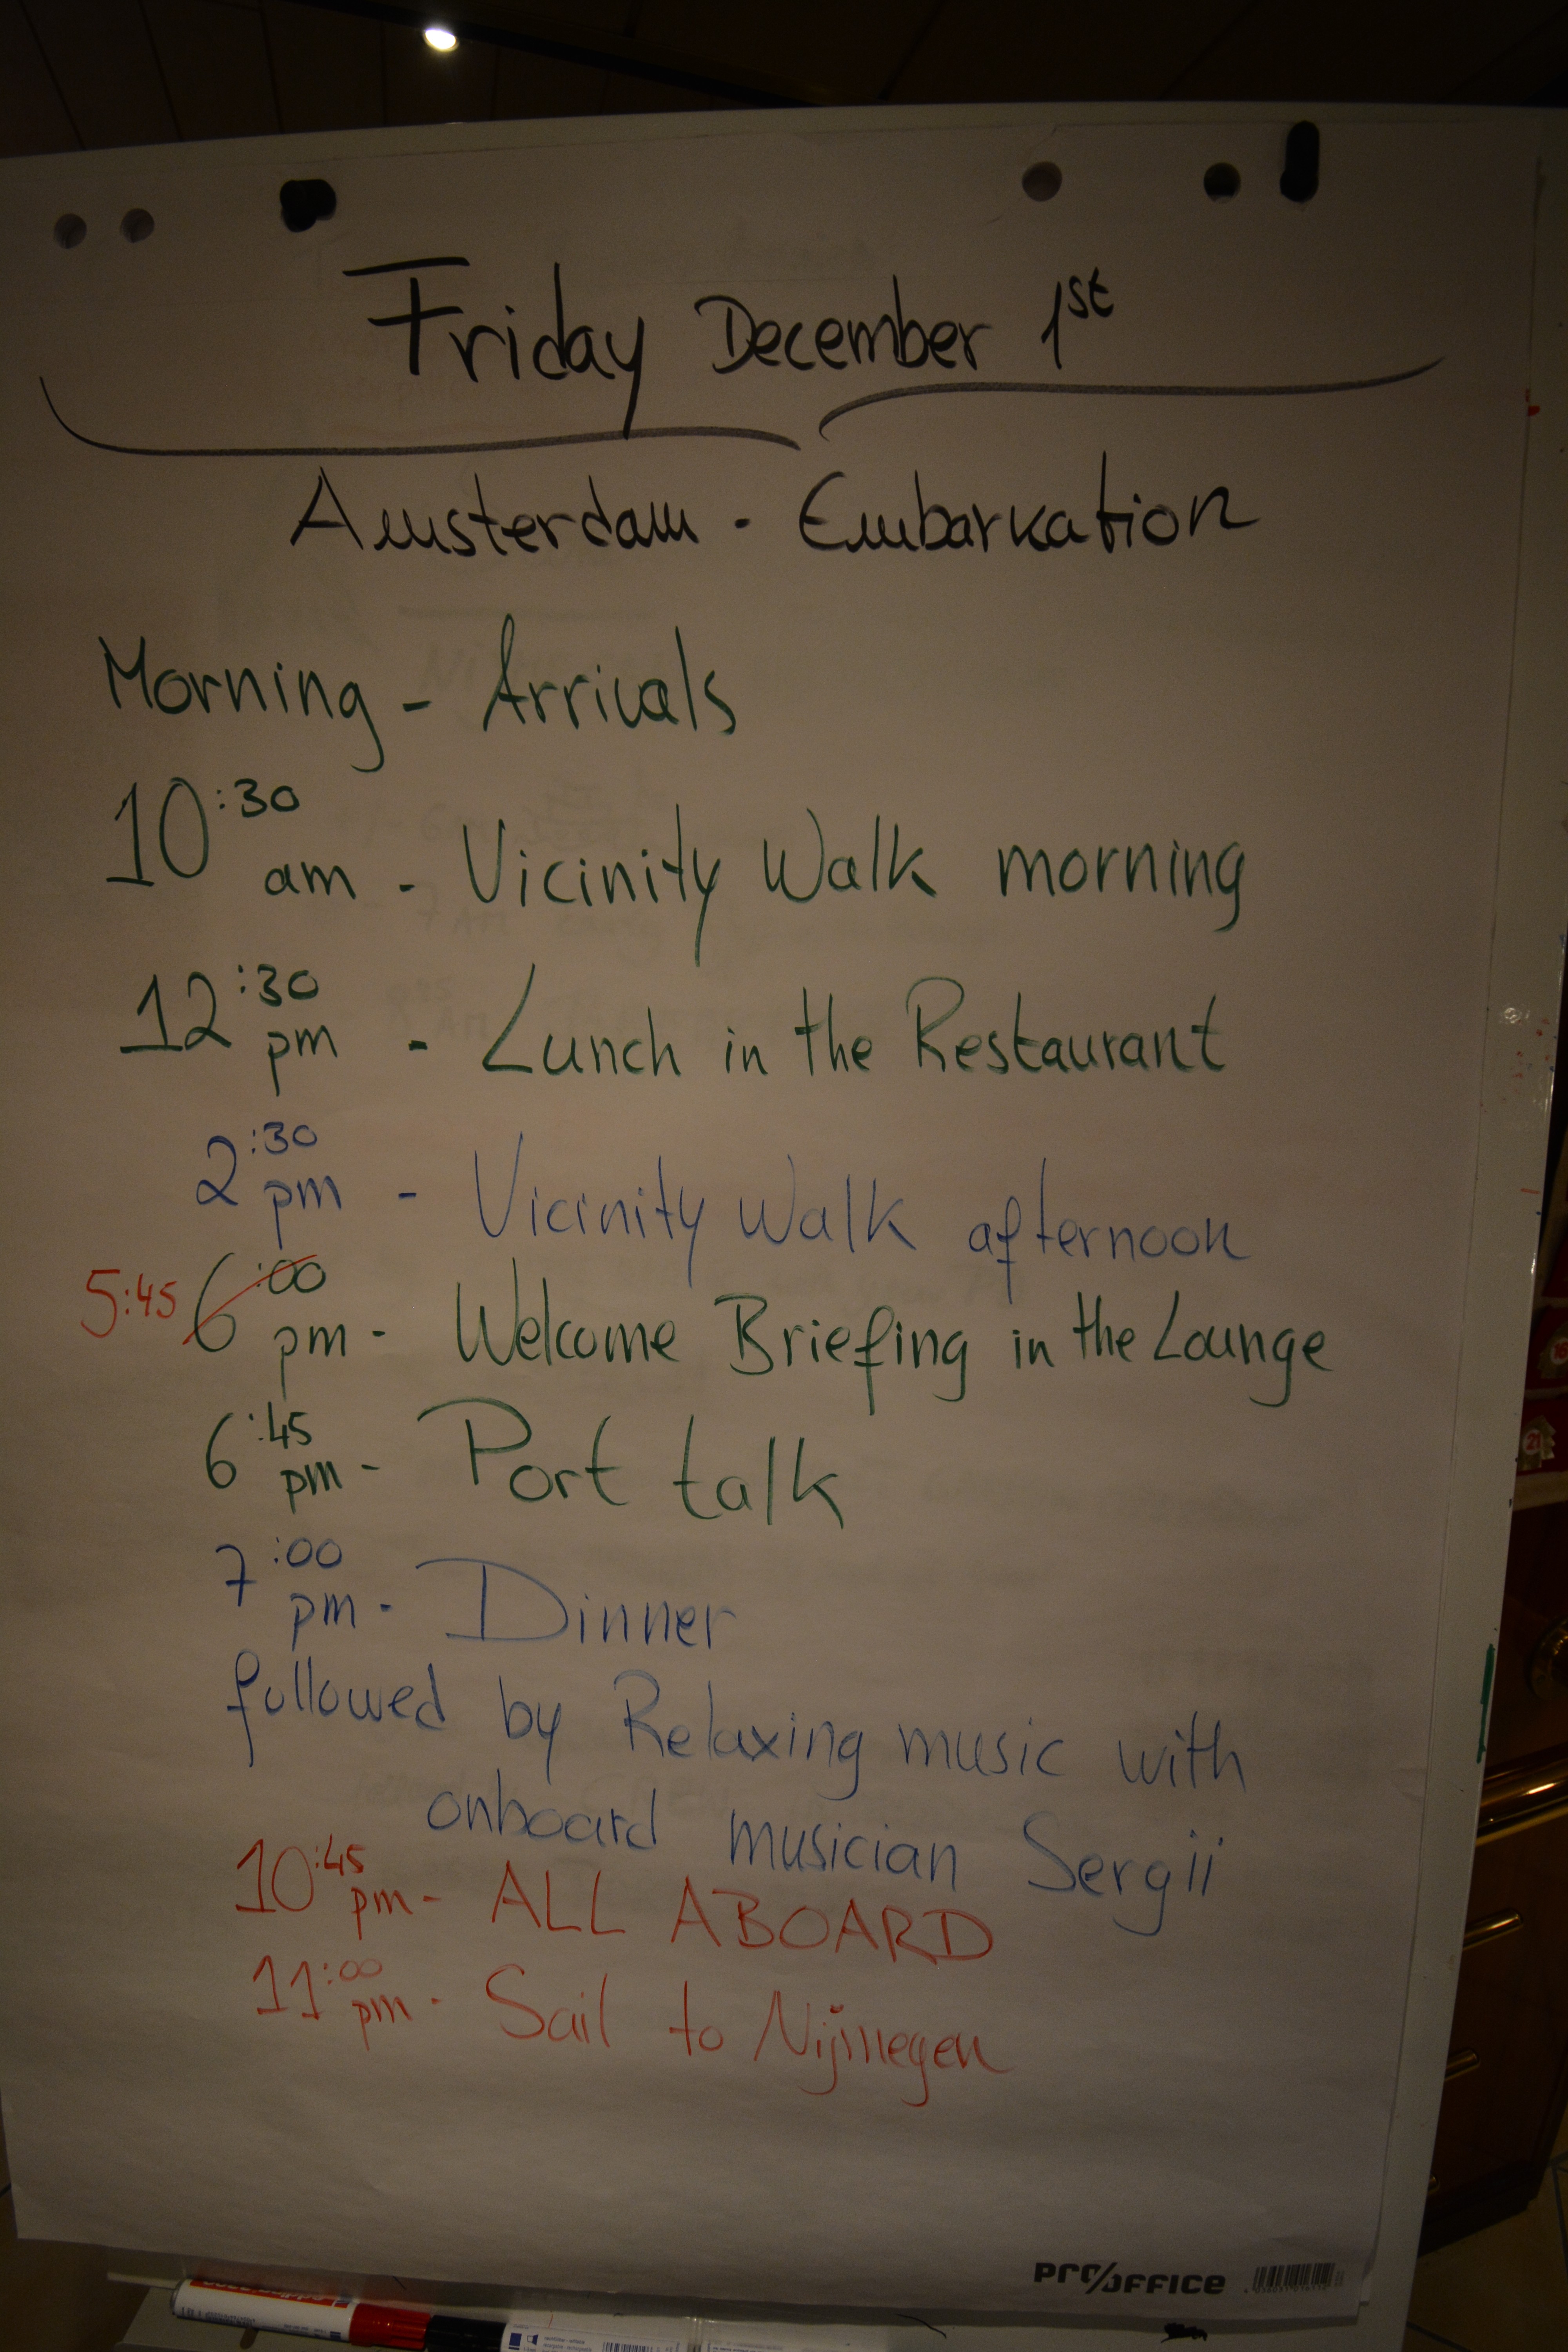 Friday December 1st
Amsterdam - Embarkation
Morning - Arrivals
10:30 am - Vicinity Walk morning
12:30 pm - Lunch in the Restaurant
2:30 pm - Vicinity Walk afternoon
5:45 6:00 pm - Welcome Briefing in the Lounge
6:45 pm - Port talk
7:00 pm - Dinner
followed by Relaxing music with
onboard musician Sergii
10:45 pm - ALL ABOARD
11:00 pm - Sail to Nijmegen
PRO/OFFICE